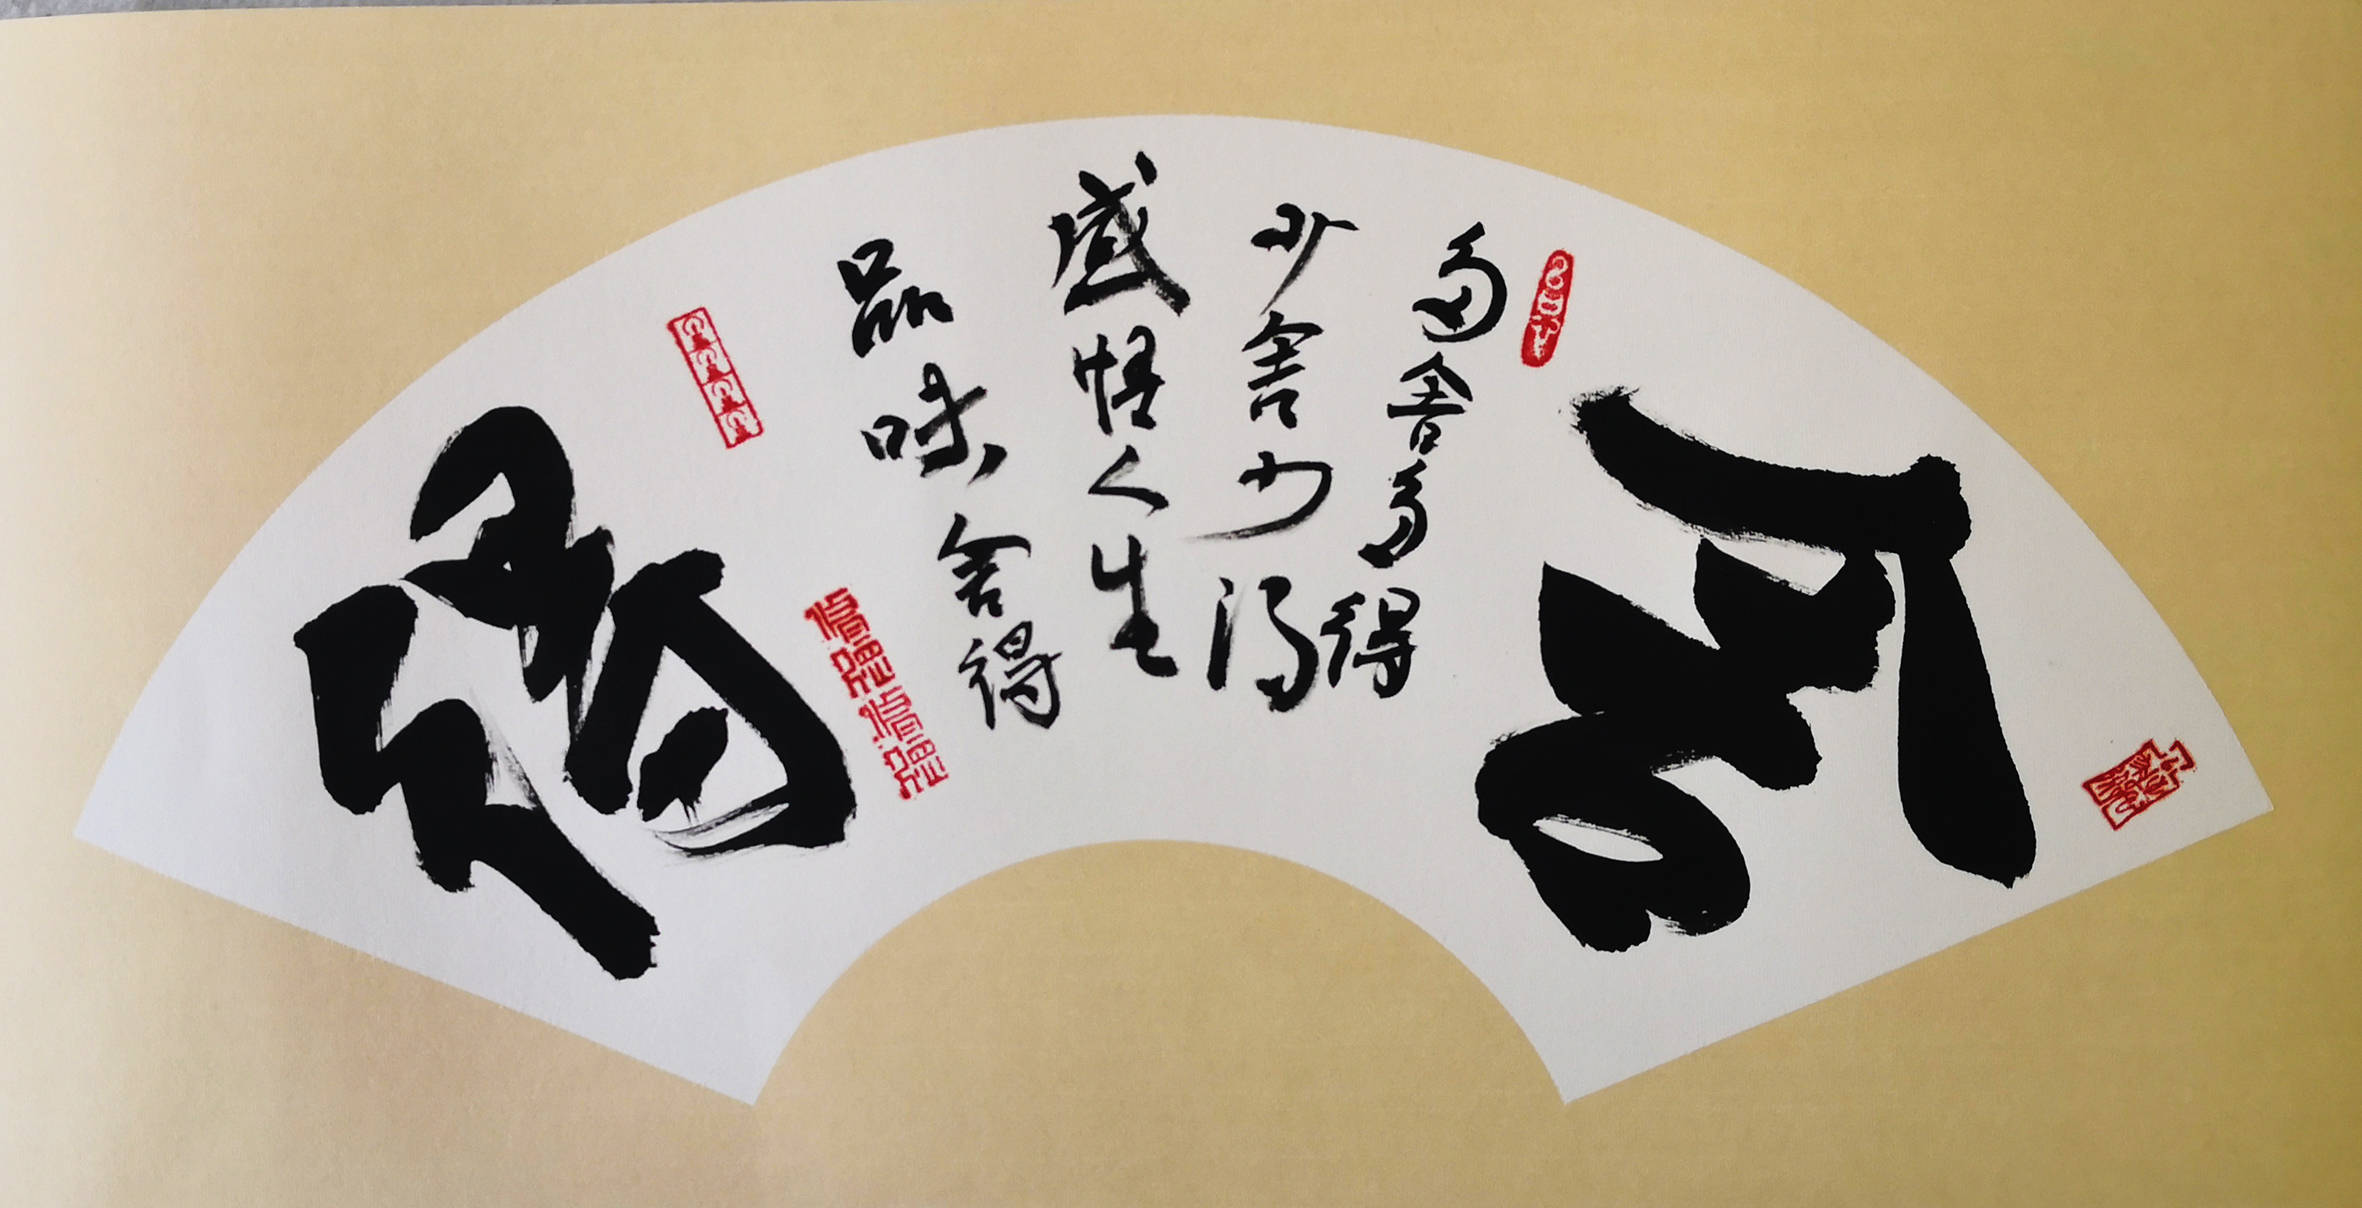 舍
多舍多得
少舍少得
感悟人生
品味舍得
得